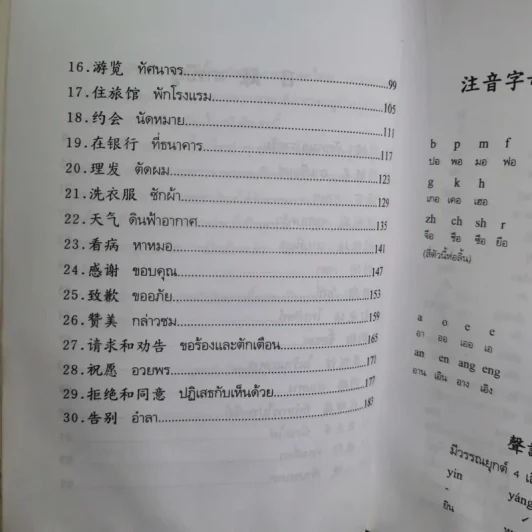 16.游览 ทัศนาจร 99
17.住旅馆 พักโรงแรม 105
18.约会 นัดหมาย 111
19.在银行 ที่ธนาคาร 117
20.理发 ตัดผม 123
21.洗衣服 ซักผ้า 129
22.天气 ดินฟ้าอากาศ 135
23.看病 หาหมอ 141
24.感谢 ขอบคุณ 147
25.致歉 ขออภัย 153
26.赞美 กล่าวชม 159
27.请求和劝告 ขอร้องและตักเตือน 165
28.祝愿 อวยพร 171
29.拒绝和同意 ปฏิเสธกับเห็นด้วย 177
30.告别 อำลา 183
注音字
b p m f
ปอ พอ มอ ฟอ
g k h
เกอ เคอ เฮอ
zh ch sh r
จือ ชือ ซือ ยือ
(สี่ตัวนี้ห่อลิ้น)
a o e e
อา ออ เออ เอ
an en ang eng
อาน เอิน อาง เอิง
聲
มีวรรณยุกต์ 4
yīn yáng
ยิน